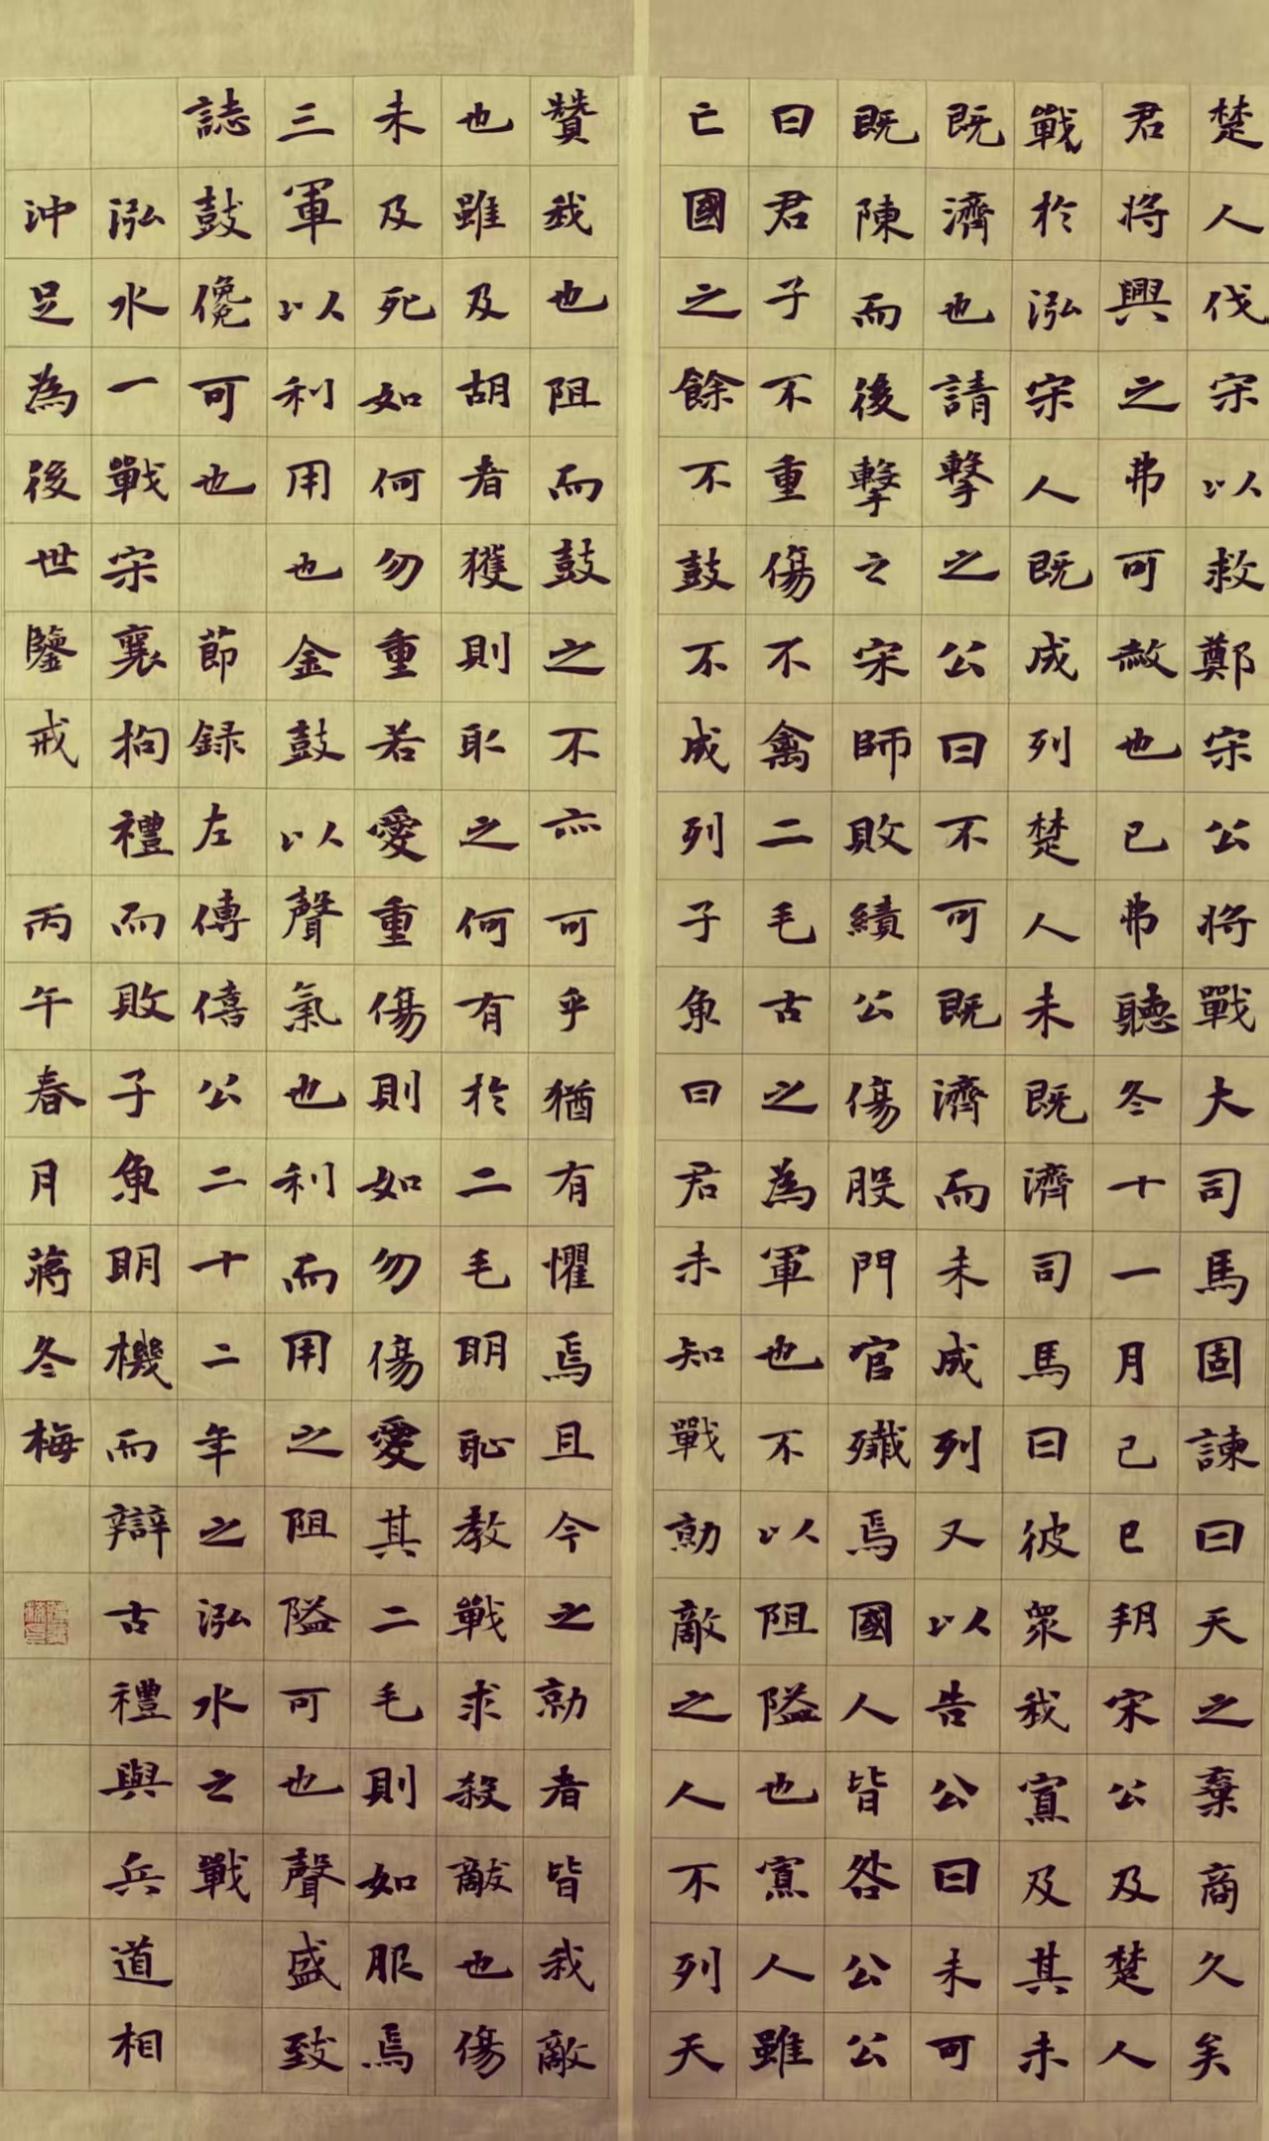 楚人伐宋以救鄭宋公将戰大司馬固諫曰天之棄商久矣
君将興之弗可赦也已弗聽冬十一月己巳朔宋公及楚人
戰於泓宋人既成列楚人未既濟司馬曰彼眾我寡及其未
既濟也請擊之公曰不可既濟而未成列又以告公曰未可
既陳而後擊之宋師敗績公傷股門官殲焉國人皆咎公公
曰君子不重傷不禽二毛古之為軍也不以阻隘也寡人雖
亡國之餘不鼓不成列子魚曰君未知戰勍敵之人不列天
贊我也阻而鼓之不亦可乎猶有懼焉且今之勍者皆我敵
也雖及胡者獲則取之何有於二毛明恥教戰求殺敵也傷
未及死如何勿重若愛重傷則如勿傷愛其二毛則如服焉
三軍以利用也金鼓以聲氣也利而用之阻隘可也聲盛致
誌鼓儳可也 節録左傳僖公二十二年之泓水之戰
泓水一戰宋襄拘禮而敗子魚明機而辯古禮與兵道相
沖足為後世鑒戒 丙午春月蔣冬梅